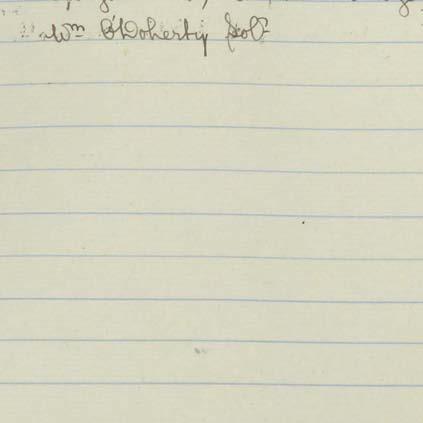 Wm O'Doherty Solr